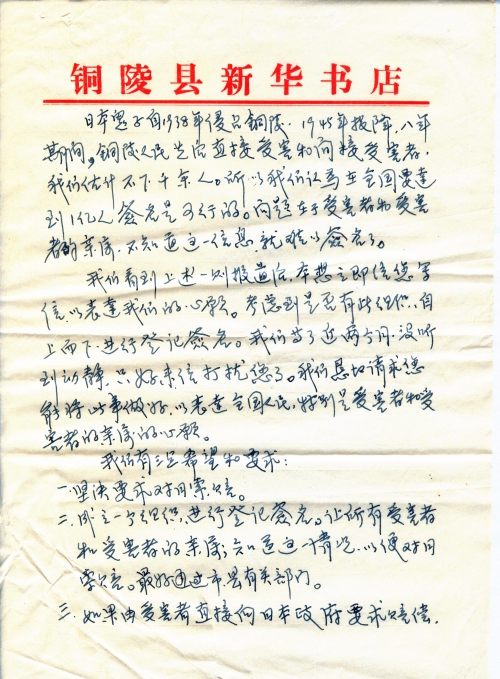 铜陵县新华书店
日本鬼子自1938年侵占铜陵，1945年投降，八年
期间，铜陵人民先后直接受害和间接受害者，
我们估计不下千余人。所以我们认为在全国要达
到1亿人签名是可行的。问题在于受害者和受害
者的亲属，不知道这一信息就难以签名了。
我们看到上述一则报道后，本想立即给您写
信，以表达我们的心愿。考虑到是否有此组织，自
上而下进行登记签名。我们等了近两个月，没听
到动静，只好来信打扰您了。我们恳切请求您
能将此事做好，以表达全国人民，特别是受害者和受
害者的亲属的心愿。
我们有三点希望和要求：
一、坚决要求对日索赔。
二、成立一个组织，进行登记签名。让所有受害者
和受害者的亲属，知道这一情况，以便对日
索赔。最好通过市县有关部门。
三、如果由受害者直接向日本政府要求赔偿，